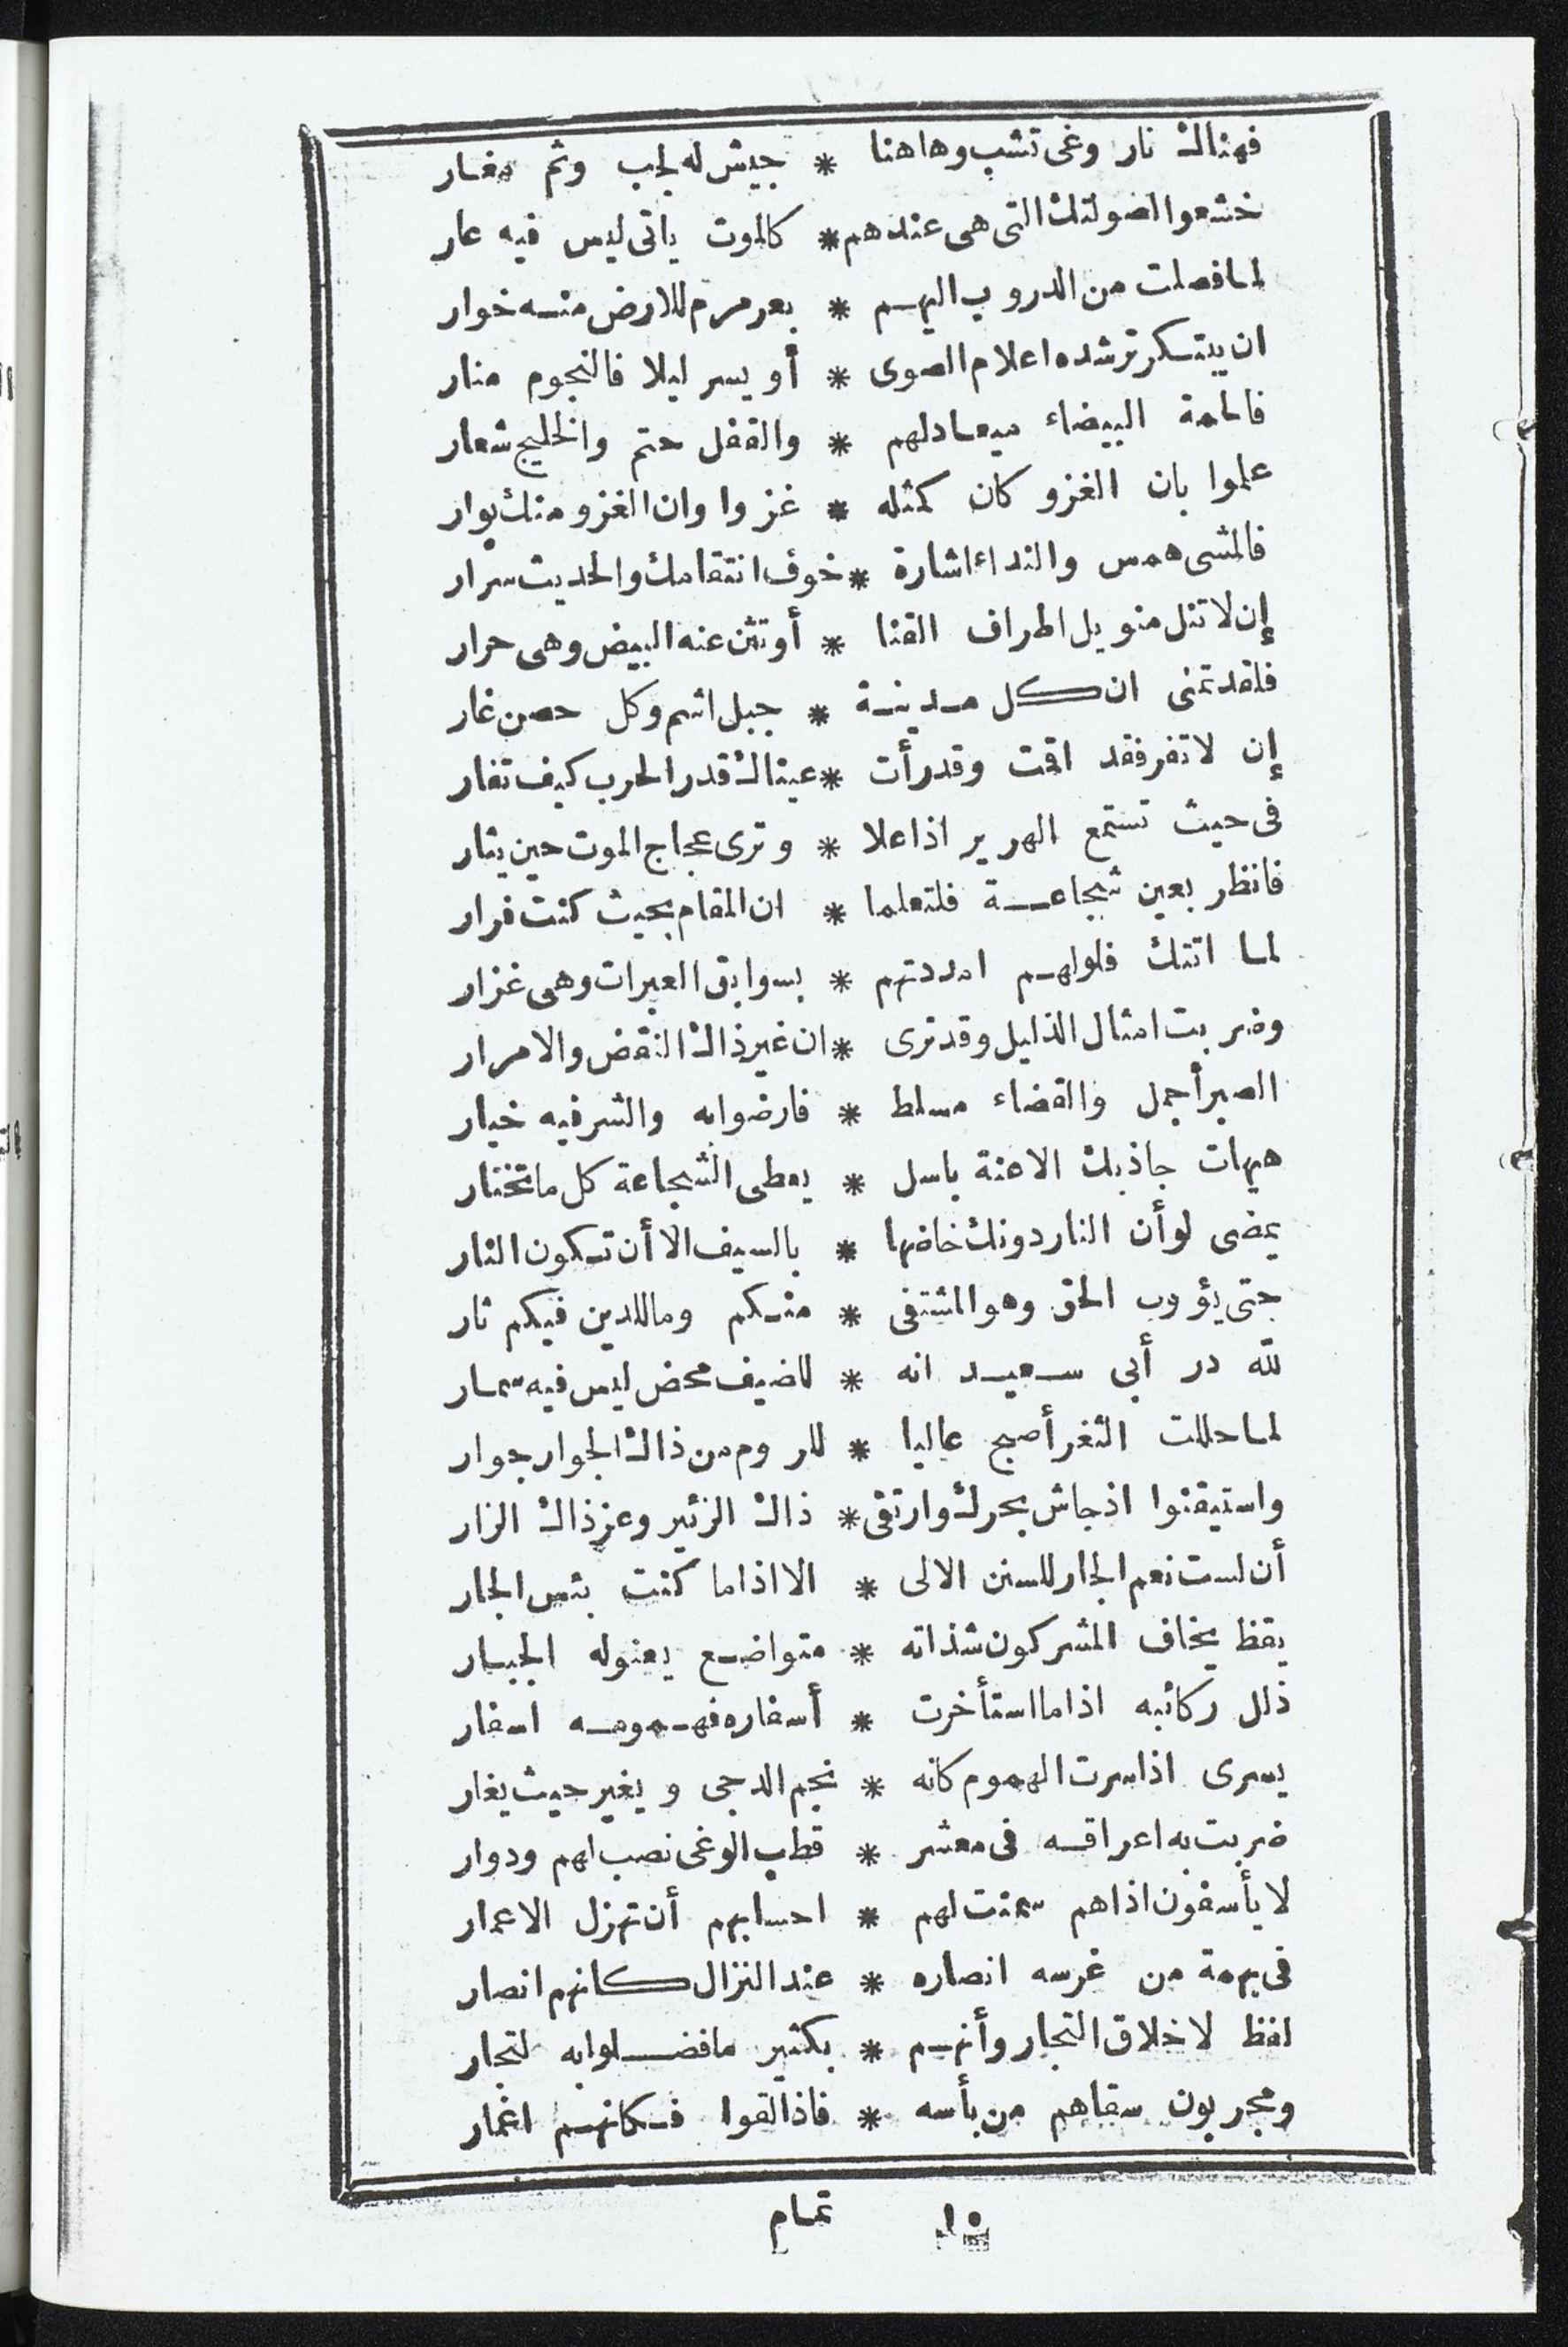 فهناك نار وغى تشب وهاهنا * جيش له لجب وثم مغار
خشعوا لصولتك التى هى عندهم * كالموت ياتى ليس فيه عار
لما فصلت من الدروب اليهم * بعرمرم للارض منه خوار
ان يبتكر ترشده اعلام الصوى * أو يسر ليلا فالنجوم منار
فالحمة البيضاء ميعادلهم * والقفل حتم والخليج شعار
علموا بان الغزو كان كمثله * غزوا وان الغزو منك بوار
فالمشى همس والنداء اشارة * خوف انتقامك والحديث سرار
إن لا تنل منويل اطراف القنا * أو تثن عنه البيض وهى حرار
فلقد تمنى ان كل مدينة * جبل اشم وكل حصن غار
إن لا تفر فقد اقمت وقد رأت * عيناك قدر الحرب كيف تفار
فى حيث تستمع الهرير اذا علا * وترى عجاج الموت حين يثار
فانظر بعين شجاعة فلتعلما * ان المقام بحيث كنت فرار
لما اتتك فلولهم امددتهم * بسوابق العبرات وهى غزار
وضربت امثال الذليل وقد ترى * ان غير ذاك النقض والامرار
الصبر أجمل والقضاء مسلط * فارضوا به والشر فيه خيار
هيهات جاذبك الاعنة باسل * يعطى الشجاعة كل ما تختار
يمضى لو أن النار دونك خاضها * بالسيف الا أن تكون النار
حتى يؤوب الحق وهو المشتفى * منكم وما للدين فيكم ثار
لله در أبى سعيد انه * للضيف محض ليس فيه سمار
لما حللت الثغر أصبح عاليا * للروم من ذاك الجوار جوار
واستيقنوا اذ جاش بحرك وارتقى * ذاك الزئير وعز ذاك الزار
أن لست نعم الجار للسنن الالى * الا اذا ما كنت بئس الجار
يقظ يخاف المشركون شذاته * متواضع يعنوله الجبار
ذلل ركائبه اذا ما استأخرت * أسفاره فهمومه اسفار
يسرى اذا سرت الهموم كانه * نجم الدجى ويغير حيث يغار
ضربت به اعراقه فى معشر * قطب الوغى نصب لهم ودوار
لا يأسفون اذا هم سمنت لهم * احسابهم أن تهزل الاعمار
فى بهمة من غرسه انصاره * عند النزال كانهم انصار
لفظ لاخلاق التجار وأنهم * بكثير ما فضلوا به لتجار
ومجربون سقاهم من بأسه * فاذا لقوا فكانهم اغمار
تمام